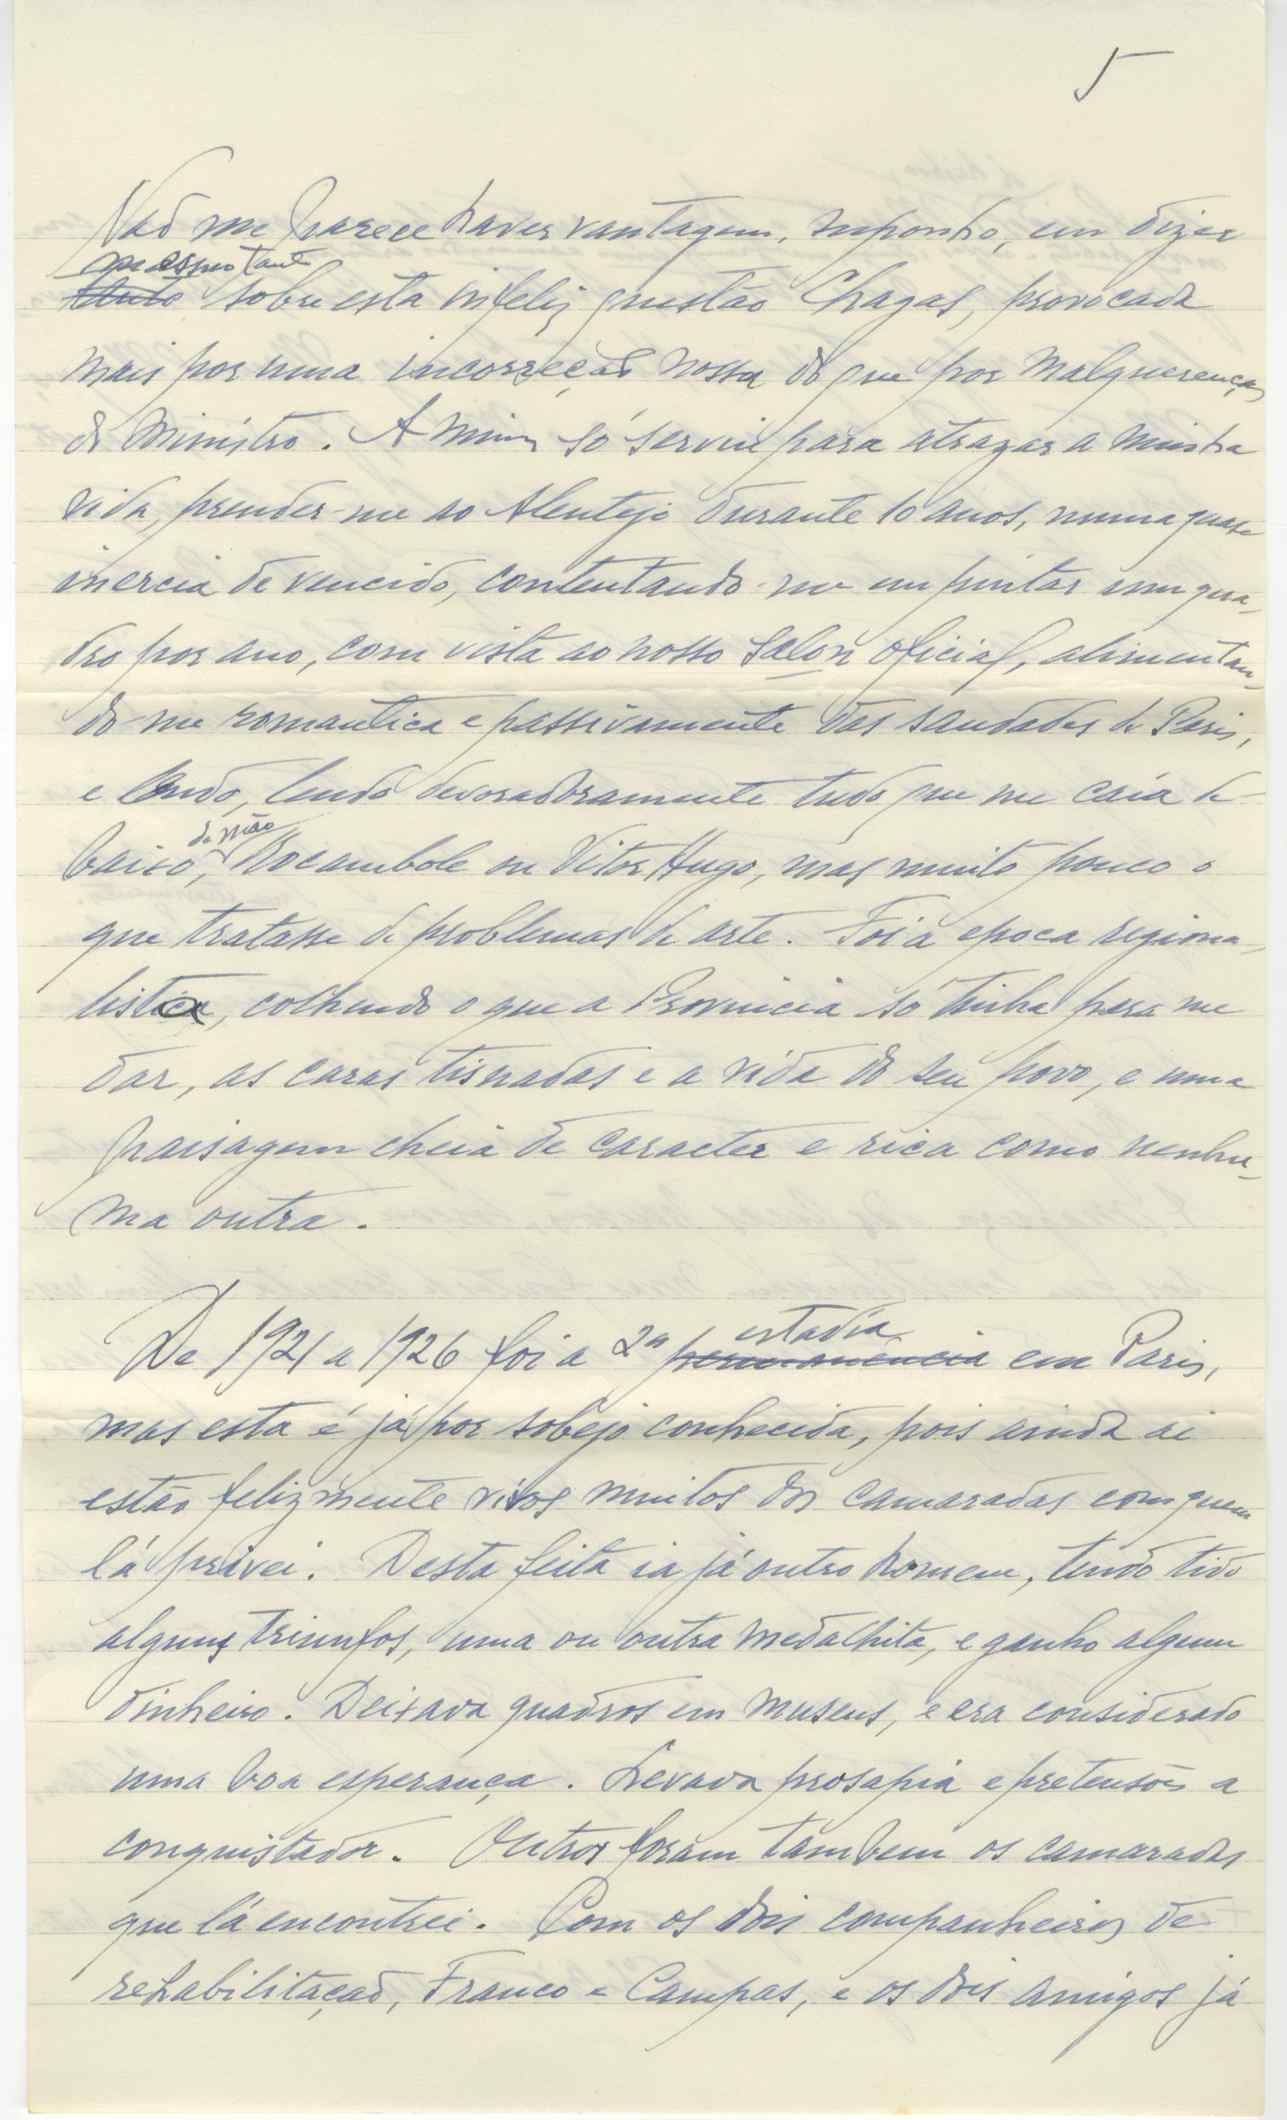 5
Não me parece haver vantagem, suponho, em dizer
sobre esta infeliz questão Chagas, provocada
mais por uma incorreção nossa do que por malquerenças
do Ministro. A mim só serviu para atrazar a minha
vida, prender-me ao Alentejo durante 10 anos, numa quase
inercia de vencido, contentando-me em pintar um qua-
dro por ano, com vista ao nosso Salon oficial, alimentan-
do-me romantica e passivamente das saudades de Paris,
e lendo, lendo devoradoramente tudo que me caía de-
baixo, da mão Rocambole ou Vitor Hugo, mas muito pouco o
que tratasse de problemas de arte. Foi a epoca regiona-
listica, colhendo o que a Provincia só tinha para me
dar, as caras tisnadas e a vida do seu povo, e uma
paisagem cheia de caracter e rica como nenhu-
ma outra.
De 1921 a 1926 foi a 2ª permanencia estadia em Paris,
mas esta é já por sobejo conhecida, pois ainda ai
estão felizmente vivos muitos dos camaradas com quem
lá privei. Desta feita ia já outro homem, tendo tido
alguns triunfos, uma ou outra medalhita, e ganho algum
dinheiro. Deixava quadros em museus, e era considerado
uma boa esperança. Levava prosapia e pretensões a
conquistador. Outros foram tambem os camaradas
que lá encontrei. Com os dois companheiros de
rehabilitação, Franco e Campas, e os dois amigos já